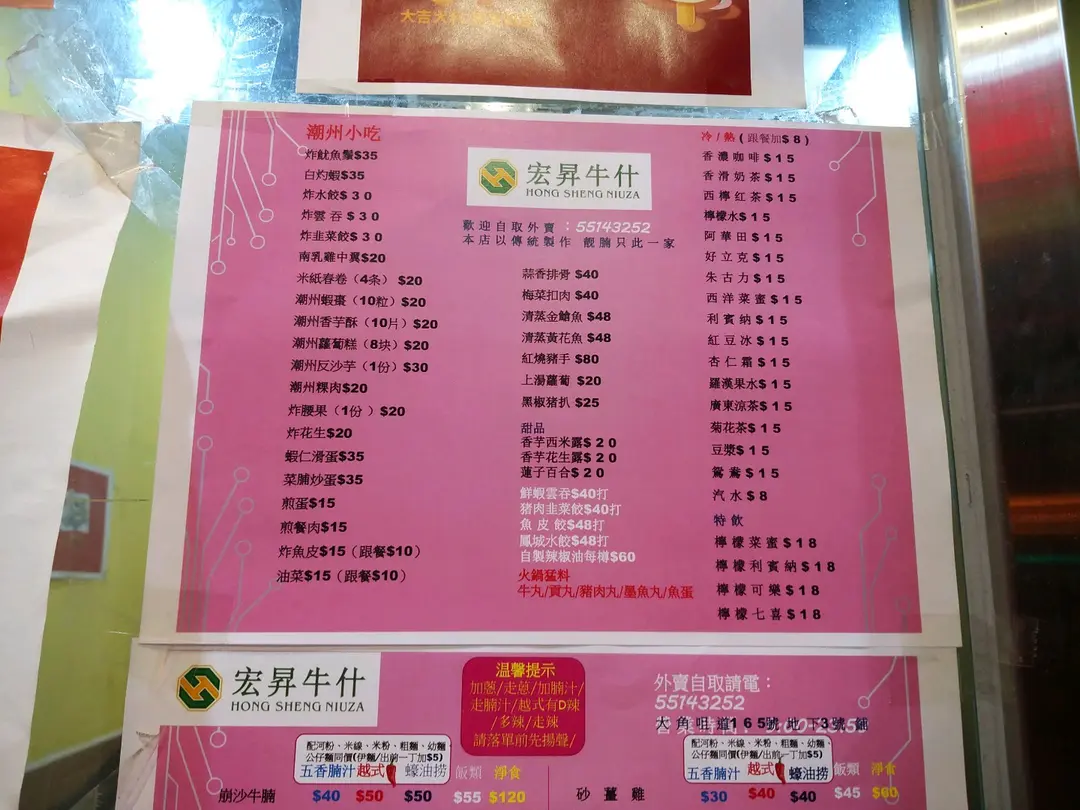 大吉大利
潮州小吃
炸魷魚鬚$35
白灼蝦$35
炸水餃$30
炸雲吞$30
炸韭菜餃$30
南乳雞中翼$20
米紙春卷（4条）$20
潮州蝦棗（10粒）$20
潮州香芋酥（10片）$20
潮州蘿蔔糕（8块）$20
潮州反沙芋（1份）$30
潮州粿肉$20
炸腰果（1份）$20
炸花生$20
蝦仁滑蛋$35
菜脯炒蛋$35
煎蛋$15
煎餐肉$15
炸魚皮$15（跟餐$10）
油菜$15（跟餐$10）
宏昇牛什
HONG SHENG NIUZA
歡迎自取外賣：55143252
本店以傳統製作 靚腩只此一家
蒜香排骨 $40
梅菜扣肉 $40
清蒸金鯧魚 $48
清蒸黃花魚 $48
紅燒豬手 $80
上湯蘿蔔 $20
黑椒猪扒 $25
甜品
香芋西米露$20
香芋花生露$20
蓮子百合$20
鮮蝦雲吞$40打
猪肉韭菜餃$40打
魚皮餃$48打
鳳城水餃$48打
自製辣椒油每樽$60
火鍋猛料
牛丸/貢丸/豬肉丸/墨魚丸/魚蛋
冷/熱(跟餐加$8)
香濃咖啡$15
香滑奶茶$15
西檸红茶$15
檸檬水$15
阿華田$15
好立克$15
朱古力$15
西洋菜蜜$15
利賓納$15
紅豆冰$15
杏仁霜$15
羅漢果水$15
廣東涼茶$15
菊花茶$15
豆漿$15
鴛鴦$15
汽水$8
特飲
檸檬菜蜜$18
檸檬利賓納$18
檸檬可樂$18
檸檬七喜$18
宏昇牛什
HONG SHENG NIUZA
温馨提示
加蔥/走蔥/加腩汁/
走腩汁/越式有D辣
/多辣/走辣
請落單前先揚聲/
外賣自取請電：
55143252
大角咀道165號地下3號鋪
配河粉、米線、米粉、粗麵、幼麵
公仔麵同價(伊麵/出前一丁加$5)
五香腩汁 越式 蠔油捞 飯類 淨食
崩沙牛腩 $40 $50 $50 $55 $120
配河粉、米線、米粉、粗麵、幼麵
公仔麵同價(伊麵/出前一丁加$5)
五香腩汁 越式 蠔油捞 飯類 淨食
砂薑雞 $30 $40 $40 $45 $60